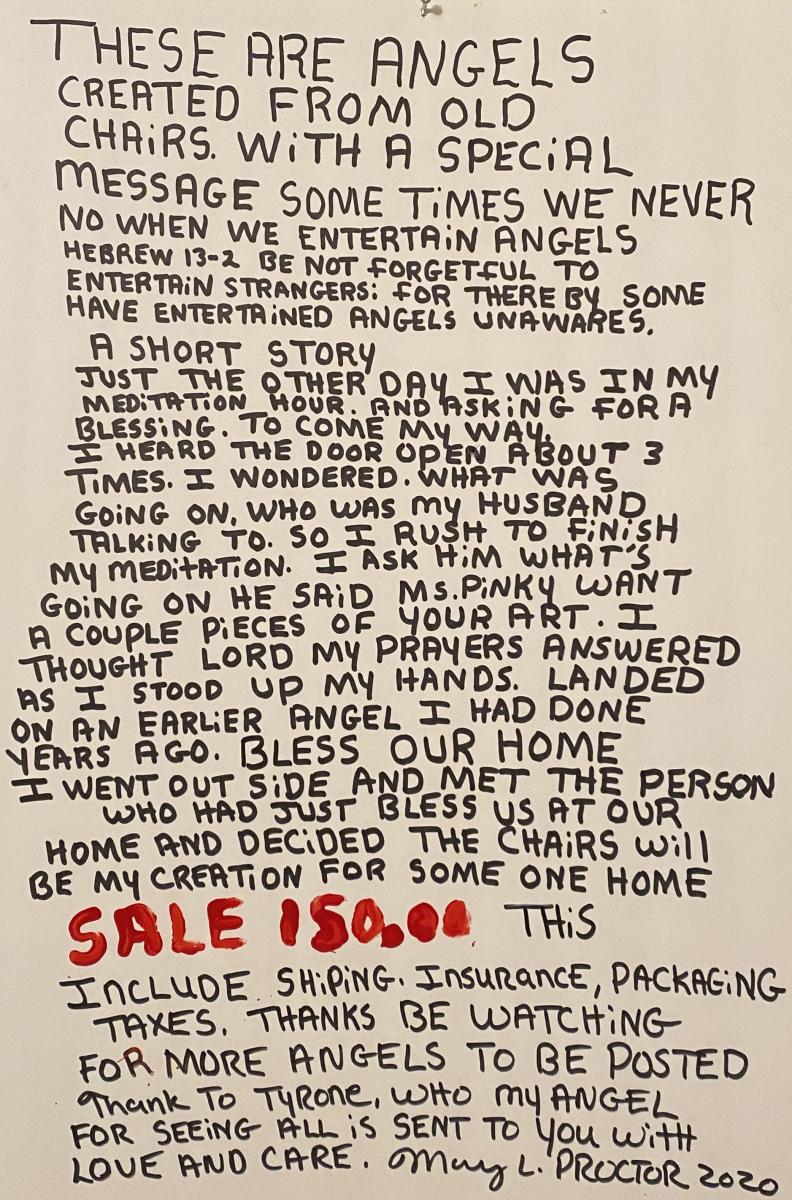 THESE ARE ANGELS
CREATED FROM OLD
CHAiRS. WiTH A SPECiAL
MESSAGE SOME TiMES WE NEVER
NO WHEN WE ENTERTAiN ANGELS
HEBREW 13-2 BE NOT FORGETFUL TO
ENTERTAiN STRANGERS: FOR THERE BY SOME
HAVE ENTERTAiNED ANGELS UNAWARES.
A SHORT STORY
JUST THE OTHER DAY I WAS IN MY
MEDiTATION HOUR. AND ASKiNG FOR A
BLESSiNG. TO COME MY WAY.
I HEARD THE DOOR OPEN ABOUT 3
TiMES. I WONDERED. WHAT WAS
GOiNG ON, WHO WAS MY HUSBAND
TALKiNG TO. SO I RUSH TO FiNiSH
MY MEDiTATION. I ASK HiM WHAT'S
GOiNG ON HE SAiD MS. PiNKY WANT
A COUPLE PiECES OF YOUR ART. I
THOUGHT LORD MY PRAYERS ANSWERED
AS I STOOD UP MY HANDS. LANDED
ON AN EARLiER ANGEL I HAD DONE
YEARS AGO. BLESS OUR HOME
I WENT OUT SiDE AND MET THE PERSON
WHO HAD JUST BLESS US AT OUR
HOME AND DECiDED THE CHAiRS Will
BE MY CREATION FOR SOME ONE HOME
SALE 150.00 THiS
INCLUDE SHiPiNG. Insurance, PACKAGiNG
TAXES. THANKS BE WATCHiNG
FOR MORE ANGELS TO BE POSTED
Thank To TyRone, WHO MY ANGEL
FOR SEEiNG ALL iS SENT TO YOU WiTH
LOVE AND CARE. Mary L. PROCTOR 2020